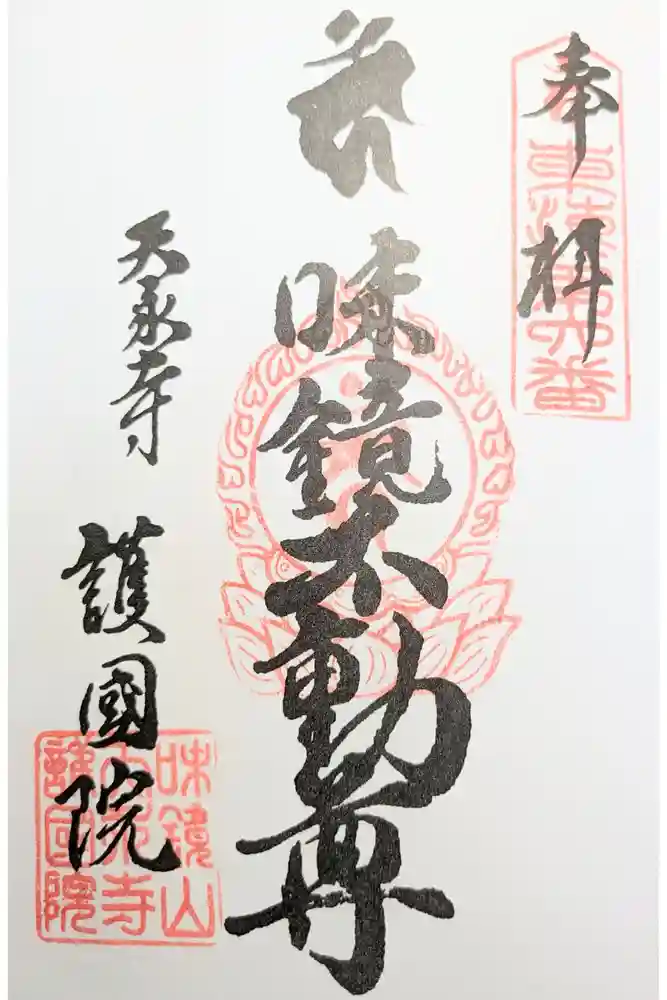 奉拝
東海第六番
味鏡不動尊
天永寺 護國院
味鏡山
天永寺
護國院